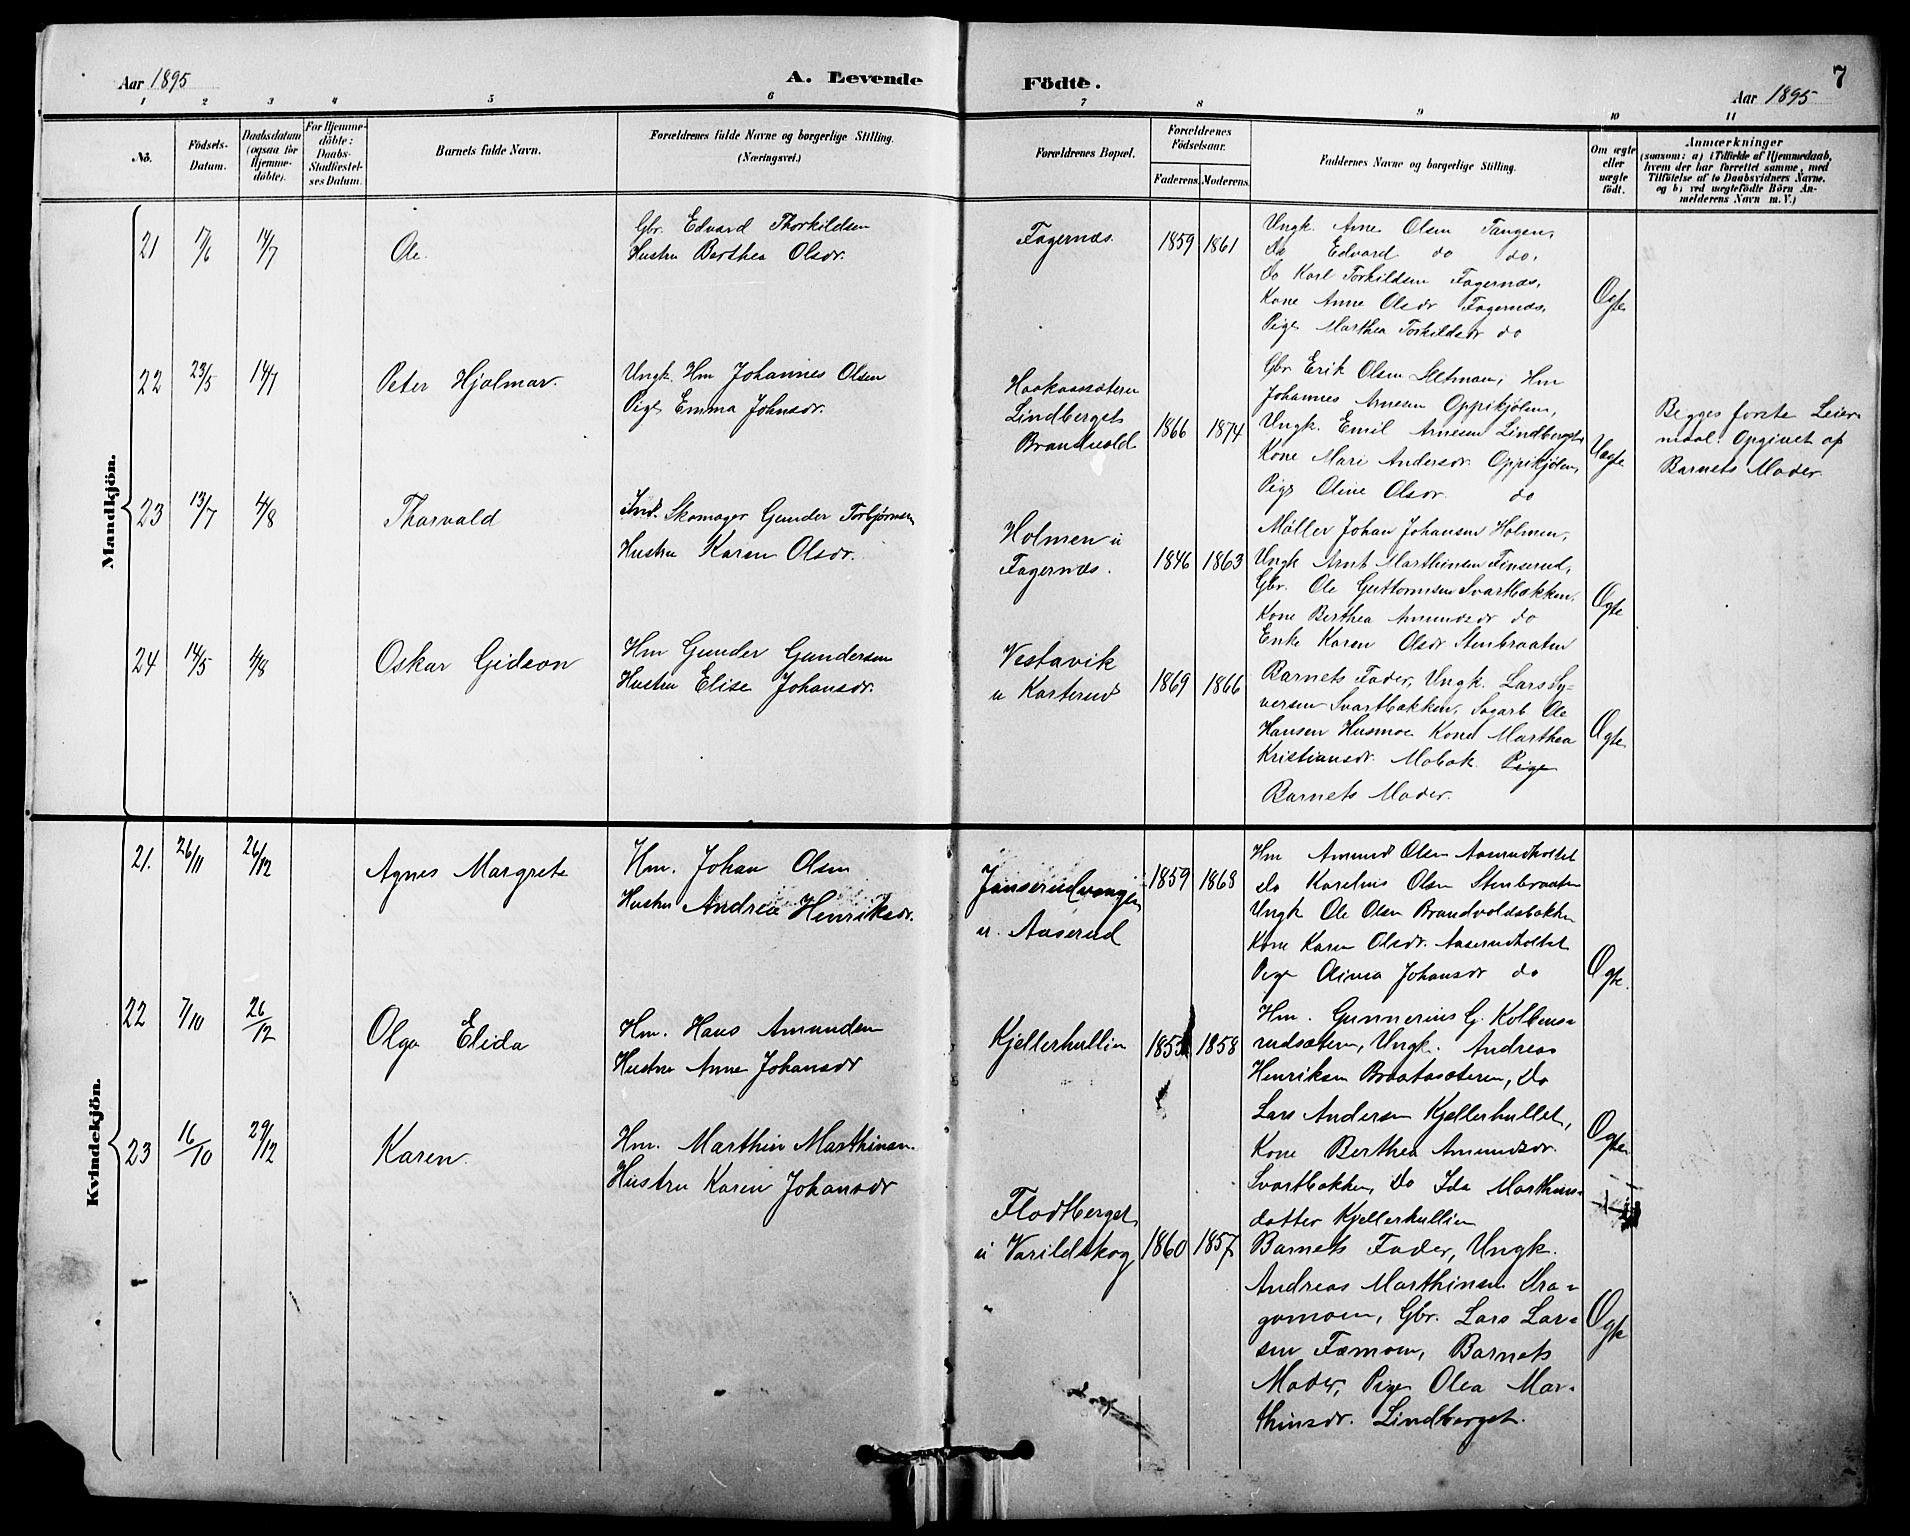 Aar 1895
A. Levende Födte.
7
Aar 1895
1 2 3 4 5 6 7 8 9 10 11
No.
Födsels-Datum.
Daabsdatum (ogsaa for Hjemme-döbte).
For Hjemme-döbte: Daabs-Stadfæstel-ses Datum.
Barnets fulde Navn.
Forældrenes fulde Navne og borgerlige Stilling. (Næringsvei.)
Forældrenes Bopæl.
Forældrenes Födselsaar.
Faderens. Moderens.
Faddernes Navne og borgerlige Stilling.
Om ægte eller uægte födt.
Anmærkninger
(saasom: a) i Tilfælde af Hjemmedaab, hvem der har forrettet samme, med Tilföielse af to Daabsvidners Navne, og b) ved uægtefödte Börn An-melderens Navn m. V.)
Mandkjön.
21 17/6 14/7 Ole.
Gbr. Edvard Thorkildsen
Hustru Berthea Olsdr.
Fagernæs.
1859 1861
Ungk. Arne Olsen Tangen,
Do Edvard do do,
Do Karl Torkildsen Fagernæs,
Kone Anne Olsdr Fagernæs,
Pige Marthea Torkildsdr do
Ægte
22 23/5 14/7 Peter Hjalmar.
Ungk. Hm Johannes Olsen
Pige Emma Johnsdr.
Haakaassæteren
Lindberget
Brandvold
1866 1874
Gbr Erik Olsen Sletmoen, Hm
Johannes Arnesen Oppikjølen,
Ungk. Emil Arnesen Lindberget
Kone Mari Andersdr. Oppikjølen,
Pige Oline Olsdr. do
Uægte
Begges første Leier-
maal. Opgivet af
Barnets Moder.
23 13/7 4/8 Tharvald
Ind. Skomager Gunder Torbjørnsen
Hustru Karen Olsdr.
Holmen u
Fagernæs.
1846 1863
Møller Johan Johansen Holmen,
Ungk Arnt Marthinsen Finserud,
Gbr. Ole Guttormsen Svartbækken.
Kone Berthea Amundsdr do
Enke Karen Olsdr Stenbraaten
Ægte
24 14/5 4/8 Oskar Gideon
Hm Gunder Gundersen
Hustru Elise Johansdr.
Vestavik
u Karterud
1869 1866
Barnets Fader, Ungk. Lars Sy-
versen Svartbækken, Sagarb Ole
Hansen Husmoe Kone Marthea
Kristiansdr. Mobæk. Pige
Barnets Moder.
Ægte
Kvindekjön.
21. 26/11 26/12 Agnes Margrete
Hm. Johan Olsen
Hustru Andrea Henriksdr.
Janserudvangen
u. Aaserud
1859 1868
Hm Amund Olsen Aaserudholtet
do Karelius Olsen Stenbraaten
Ungk Ole Olsen Brandvoldsbakken
Kone Karen Olsdr. Aaserudholtet
Pige Olivia Johansdr do
Ægte.
22 7/10 26/12 Olga Elida
Hm. Hans Amundsen
Hustru Anne Johansdr
Kjellerhullin
1853 1858
Hm. Gunnerius G. Kolbens-
rudsæteren, Ungk. Andreas
Henriksen Braatasæteren, Do
Lars Andersen Kjellerhullet,
Kone Berthea Amundsdr.
Svartbækken, Do Ida Marthins-
datter Kjellerhullin
Ægte
23 16/10 29/12 Karen.
Hm. Marthin Marthinsen.
Hustru Karen Johansdr
Flodberget
u Varildskog
1860 1857
Barnets Fader, Ungk.
Andreas Marthinsen Dra-
gomoen, Gbr. Lars Lar-
sen Fæmoen, Barnets
Moder, Pige Olea Mar-
thinsdr. Lindberget.
Ægte